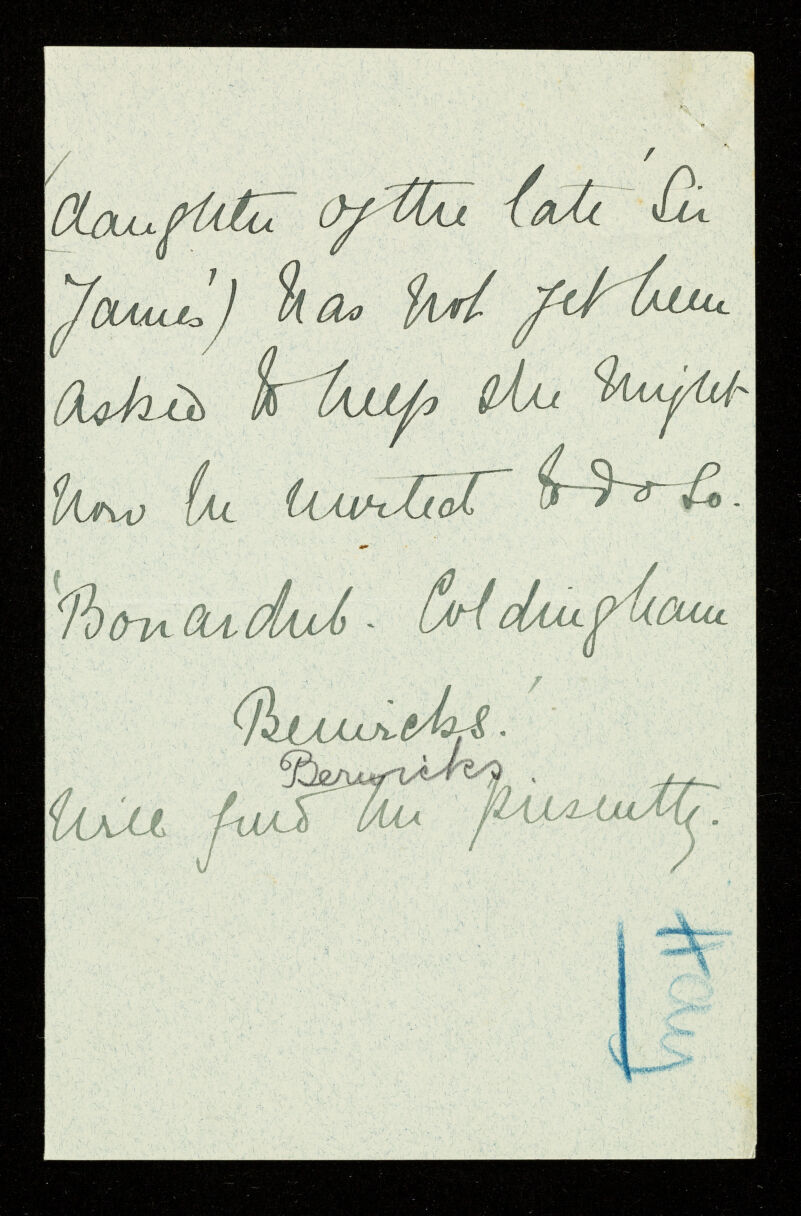 (daughter of the late 'Sir
James') has not yet been
asked to help she might
now be invited to do so.
'Bonardub. Coldingham
Berwicks.'
Berwicks
will find her presently.
Hay